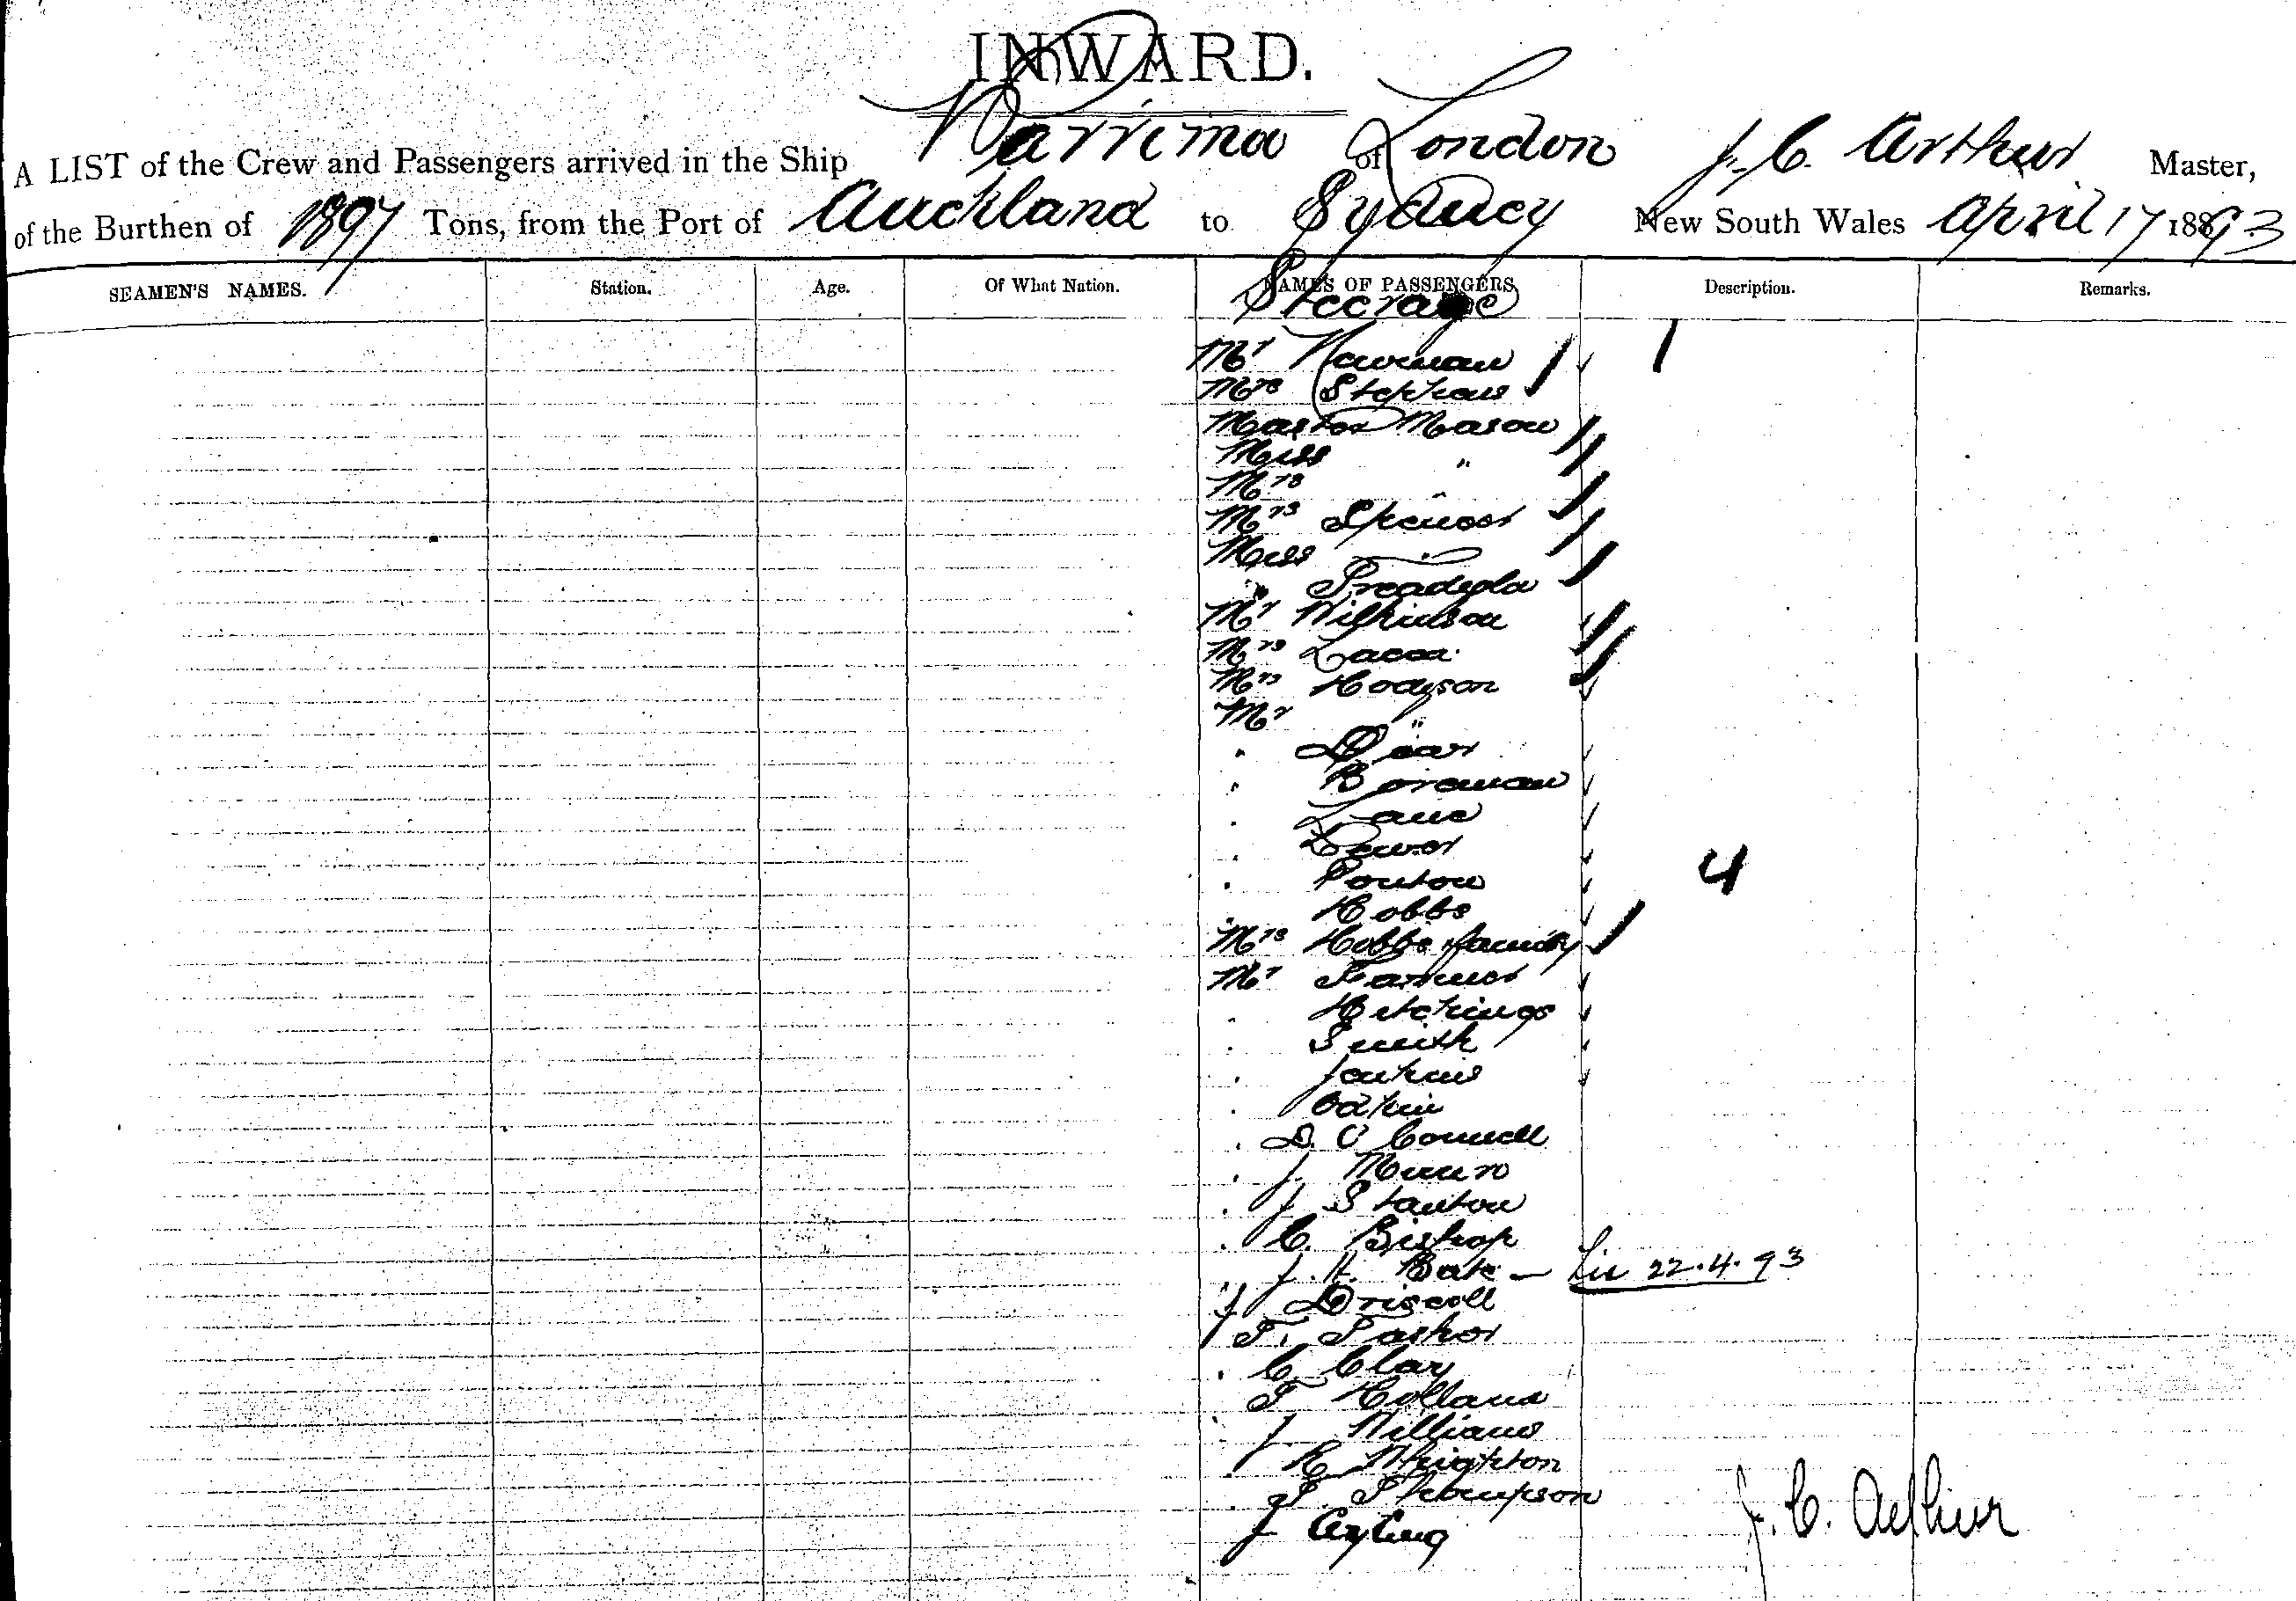 INWARD.
A LIST of the Crew and Passengers arrived in the Ship Warrimoo of London J. C. Arthur Master,
of the Burthen of 1897 Tons, from the Port of Auckland to Sydney New South Wales April 17 1893
SEAMEN'S NAMES. Station. Age. Of What Nation. NAMES OF PASSENGERS Description. Remarks.
Steerage
Mr Newman 1
Mrs Stephens
Master Mason
Miss "
Mrs "
Mrs Spencer
Miss "
"
Mr Wilkinson
Mrs
Mrs Hodgson
Mr "
" Dear
" Boreman
" Lane
"
" Ponton 4
" Hobbs
Mrs Hobbs family
Mr Farmer
" Hetchings
" Smith
" Jenkins
" Oakin
" D. O Connell
" J. Munro
" J Stanton
" C. Bishop
" J. H. Bate — 22.4.93
" J Driscoll
T.
" C Clay
F Holland
" J Williams
" R Weighton
" Thompson
J Ayling
J. C. Arthur